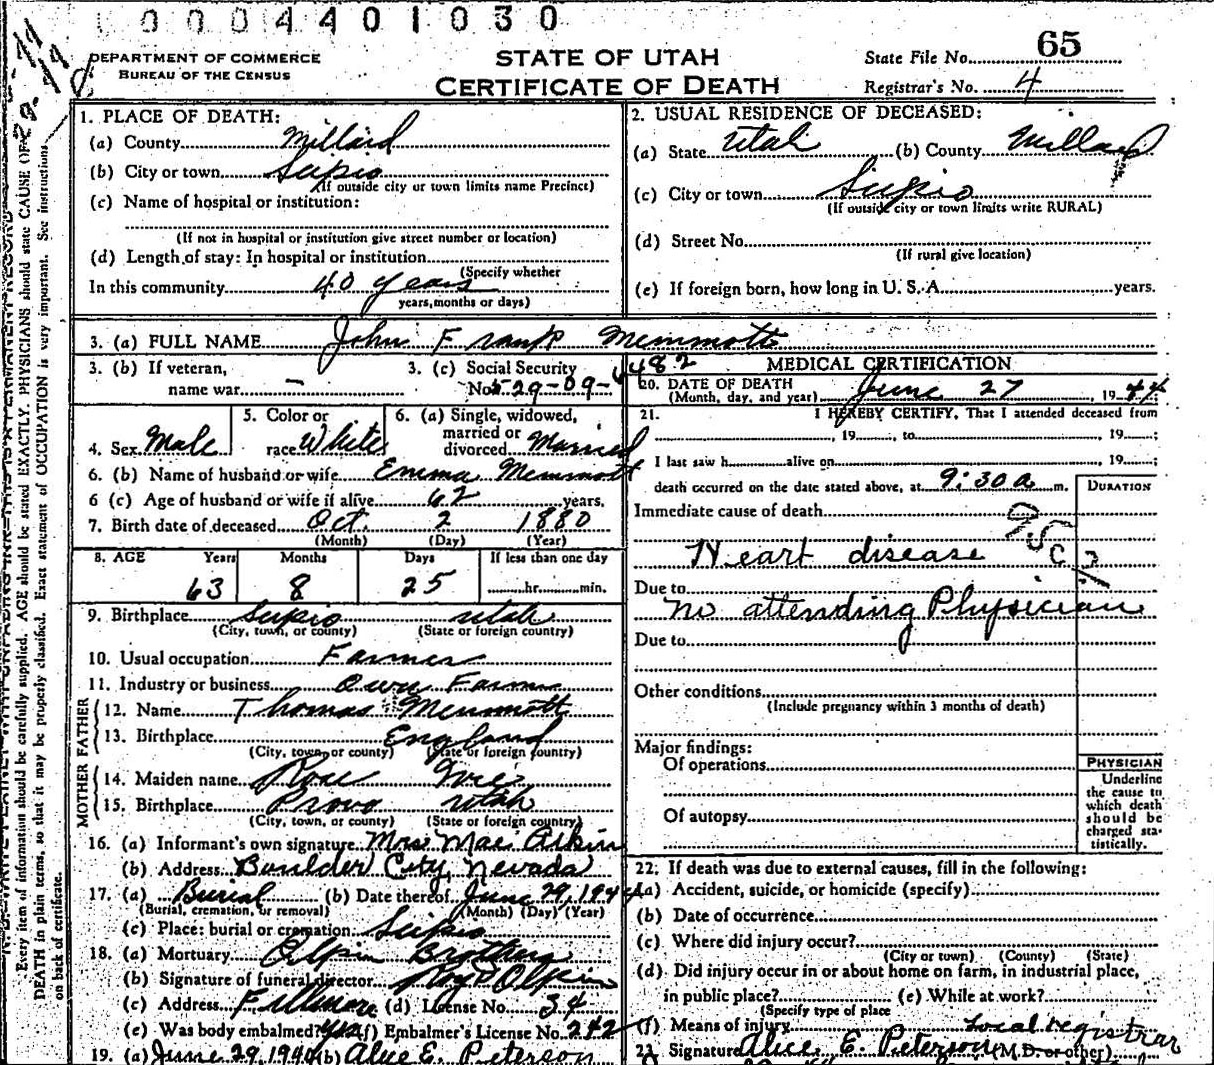 0004401030
DEPARTMENT OF COMMERCE
BUREAU OF THE CENSUS
STATE OF UTAH
CERTIFICATE OF DEATH
State File No. 65
Registrar's No. 4
Every item of information should be carefully supplied. AGE should be stated EXACTLY. PHYSICIANS should state CAUSE OF
DEATH in plain terms, so that it may be properly classified. Exact statement of OCCUPATION is very important. See instructions
on back of certificate.
1. PLACE OF DEATH:
(a) County Millard
(b) City or town Scipio
(If outside city or town limits name Precinct)
(c) Name of hospital or institution:
(If not in hospital or institution give street number or location)
(d) Length of stay: In hospital or institution
(Specify whether
In this community 40 years
years, months or days)
2. USUAL RESIDENCE OF DECEASED:
(a) State Utah (b) County Millard
(c) City or town Scipio
(If outside city or town limits write RURAL)
(d) Street No.
(If rural give location)
(e) If foreign born, how long in U. S. A. years.
3. (a) FULL NAME John Frank Memmott
3. (b) If veteran,
name war –
3. (c) Social Security
No. 529-09-6482
4. Sex Male
5. Color or
race White
6. (a) Single, widowed,
married or
divorced Married
6. (b) Name of husband or wife Emma Memmott
6 (c) Age of husband or wife if alive 62 years.
7. Birth date of deceased Oct. 2 1880
(Month) (Day) (Year)
8. AGE Years Months Days If less than one day
63 8 25 hr. min.
9. Birthplace Scipio Utah
(City, town, or county) (State or foreign country)
10. Usual occupation Farmer
11. Industry or business Own Farm
FATHER
12. Name Thomas Memmott
13. Birthplace England
(City, town, or county) (State or foreign country)
MOTHER
14. Maiden name Rose
15. Birthplace Provo Utah
(City, town, or county) (State or foreign country)
16. (a) Informant's own signature Mrs Mae Atkin
(b) Address Boulder City, Nevada
17. (a) Burial (b) Date thereof June 29, 1944
(Burial, cremation, or removal) (Month) (Day) (Year)
(c) Place: burial or cremation Scipio
18. (a) Mortuary Olpin Brothers
(b) Signature of funeral director Roy P Olpin
(c) Address Fillmore (d) License No. 34
(e) Was body embalmed? Yes (f) Embalmer's License No. 242
19. (a) June 29, 1944 (b) Alice E. Peterson
MEDICAL CERTIFICATION
20. DATE OF DEATH
(Month, day, and year) June 27 1944
21. I HEREBY CERTIFY, That I attended deceased from
, 19 , to , 19 ;
I last saw h alive on , 19 ;
death occurred on the date stated above, at 9:30 a m.
DURATION
Immediate cause of death
95c
Heart disease
Due to
no attending Physician
Due to
Other conditions
(Include pregnancy within 3 months of death)
Major findings:
Of operations
Of autopsy
PHYSICIAN
Underline
the cause to
which death
should be
charged sta-
tistically.
22. If death was due to external causes, fill in the following:
(a) Accident, suicide, or homicide (specify)
(b) Date of occurrence
(c) Where did injury occur?
(City or town) (County) (State)
(d) Did injury occur in or about home on farm, in industrial place,
in public place? (e) While at work?
(Specify type of place
(f) Means of injury Local registrar
23. Signature Alice E. Peterson (M.D. or other)